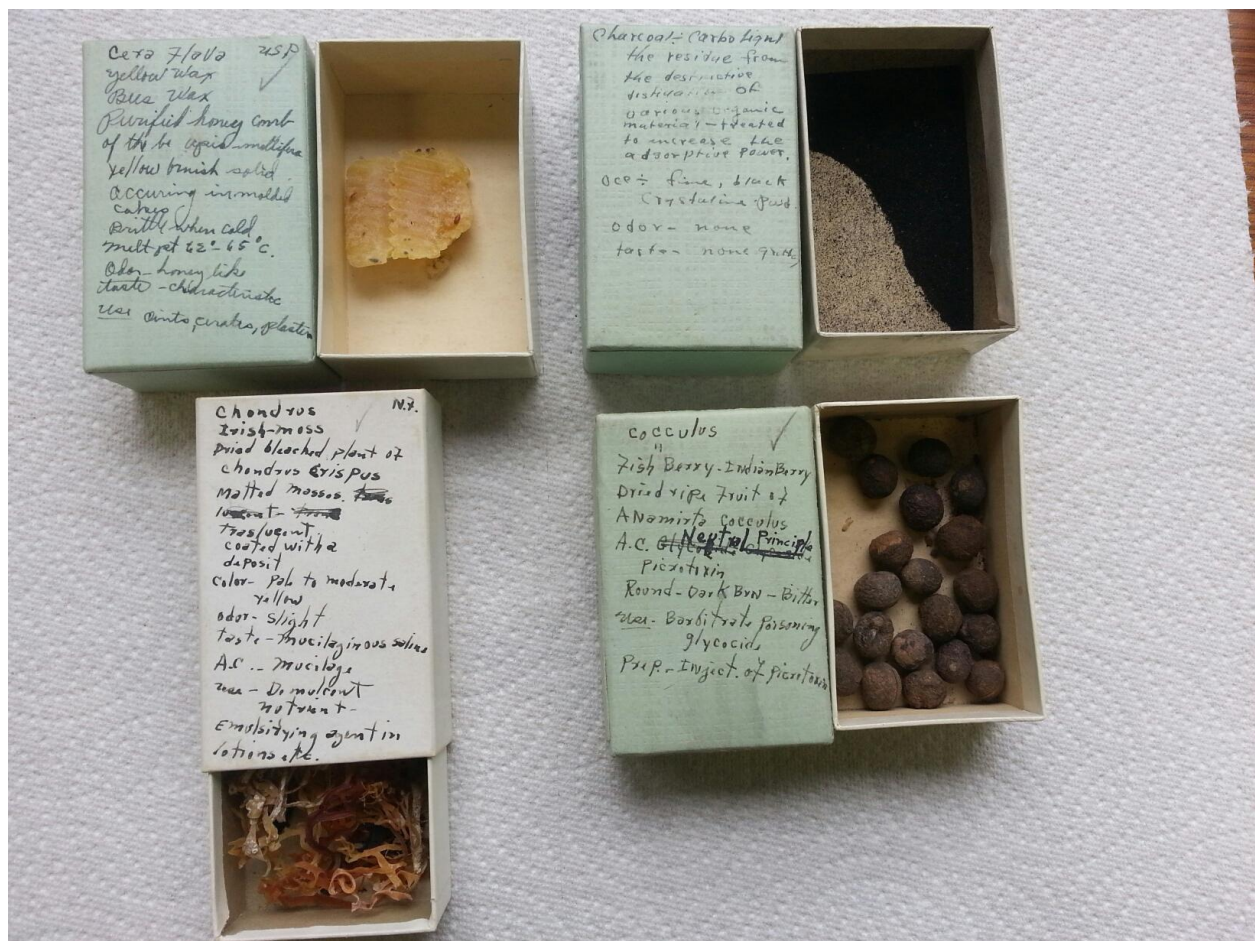 Cera Flava USP
yellow wax
Bees Wax
Purified honey comb
of the be apis mellifera
yellow brnish solid
occuring in molded
cakes
Brittle when cold
melt pt 62° 65°C.
Odor - honey like
taste - characteristic
use oints, cerates, plasters
Charcoal - Carbo Ligni
the residue from
the destructive
distillation of
various organic
material - treated
to increase the
adsorptive power.
occ ÷ fine, black
Crystaline pwd.
odor - none
taste - none gritty
Chondrus N.F.
Irish-moss
Dried bleached plant of
chondrus crispus
Matted masses.
translucent
coated with a
deposit
color - Pale to moderate
yellow
odor - slight
taste - mucilaginous saline
A.C. - Mucilage
use - Demulcent
nutrient -
Emulsifying agent in
lotions etc.
cocculus
"
Fish Berry - Indian Berry
Dried ripe Fruit of
ANamirta cocculus
A.C. Neutral Principle
Picrotoxin
Round - Dark Brn - Bitter
use - Barbitrate poisoning
Prep. - Inject. of picrotoxin